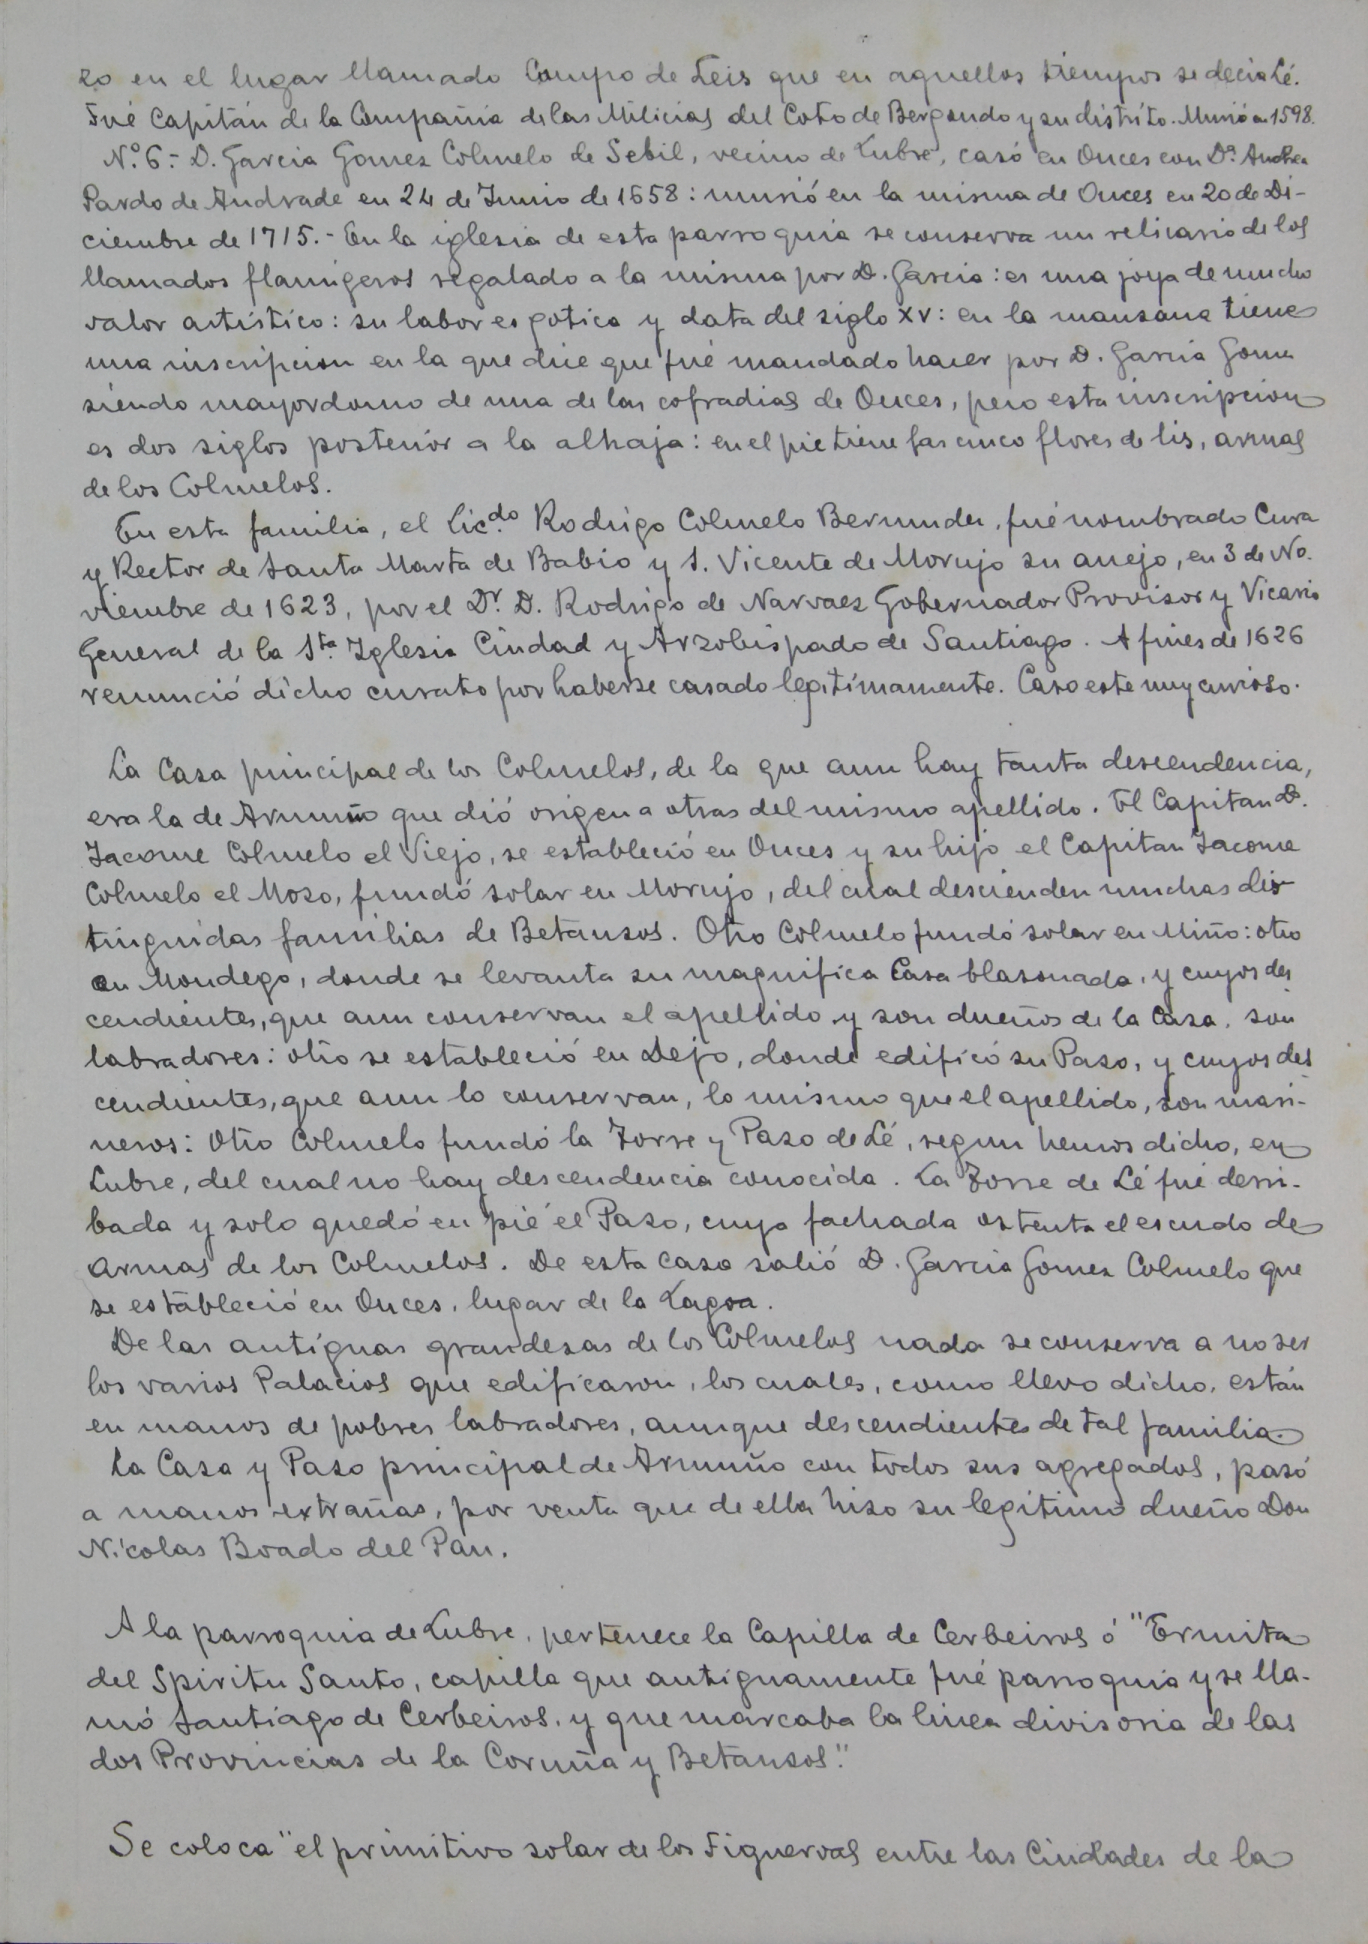 zo en el lugar llamado Campo de Leis que en aquellos tiempos se decia Lé.
Fué Capitán de la Compañia de las Milicias del Coto de Bergondo y su distrito. Murió en 1598.
N.º 6 - D. Garcia Gomez Colmelo de Sebil, vecino de Lubre, casó en Ouces con Dª. Andrea
Pardo de Andrade en 24 de Junio de 1658: murió en la misma de Ouces en 20 de Di-
ciembre de 1715. - En la iglesia de esta parroquia se conserva un relicario de los
llamados flamigeros regalado a la misma por D. Garcia: es una joya de mucho
valor artistico: su labor es gotica y data del siglo XV: en la manzana tiene
una inscripcion en la que dice que fué mandado hacer por D. Garcia Gome
siendo mayordomo de una de las cofradias de Ouces, pero esta inscripcion
es dos siglos posterior a la alhaja: en el pie tiene las cinco flores de lis, armas
de los Colmelos.
En esta familia, el Lic.do Rodrigo Colmelo Bermudez, fué nombrado Cura
y Rector de Santa Marta de Babio y S. Vicente de Morujo su anejo, en 3 de No.
viembre de 1623, por el Dr. D. Rodrigo de Narvaez Gobernador Provisor y Vicario
General de la Sta. Iglesia Ciudad y Arzobispado de Santiago. A fines de 1626
renunció dicho curato por haberse casado legitimamente. Caso este muy curioso.
La Casa principal de los Colmelos, de la que aun hay tanta descendencia,
era la de Armuño que dió origen a otras del mismo apellido. El Capitan D.
Jacome Colmelo el Viejo, se estableció en Ouces y su hijo el Capitan Jacome
Colmelo el Mozo, fundó solar en Morujo, del cual descienden muchas dis
tinguidas familias de Betanzos. Otro Colmelo fundó solar en Miño: otro
en Mondego, donde se levanta su magnifica Casa blasonada, y cuyos des
cendientes, que aun conservan el apellido y son dueños de la Casa, son
labradores: otro se estableció en Dejo, donde edificó su Pazo, y cuyos des
cendientes, que aun lo conservan, lo mismo que el apellido, son mari-
neros: Otro Colmelo fundó la Torre y Pazo de Lé, segun hemos dicho, en
Lubre, del cual no hay descendencia conocida. La Torre de Lé fué derri-
bada y solo quedó en pié el Pazo, cuya fachada ostenta el escudo de
armas de los Colmelos. De esta casa salió D. Garcia Gomez Colmelo que
se estableció en Ouces, lugar de la Lagoa.
De las antiguas grandezas de los Colmelos nada se conserva a no ser
los varios Palacios que edificaron, los cuales, como llevo dicho, están
en manos de pobres labradores, aunque descendientes de tal familia.
La Casa y Pazo principal de Armuño con todos sus agregados, pasó
a manos extrañas, por venta que de ella hizo su legitimo dueño Don
Nicolas Boado del Pan.
A la parroquia de Lubre, pertenece la Capilla de Cerbeiros ó "Ermita
del Spiritu Santo, capilla que antiguamente fué parroquia y se lla-
mó Santiago de Cerbeiros, y que marcaba la linea divisoria de las
dos Provincias de la Coruña y Betanzos".
Se coloca "el primitivo solar de los Figueroas entre las Ciudades de la